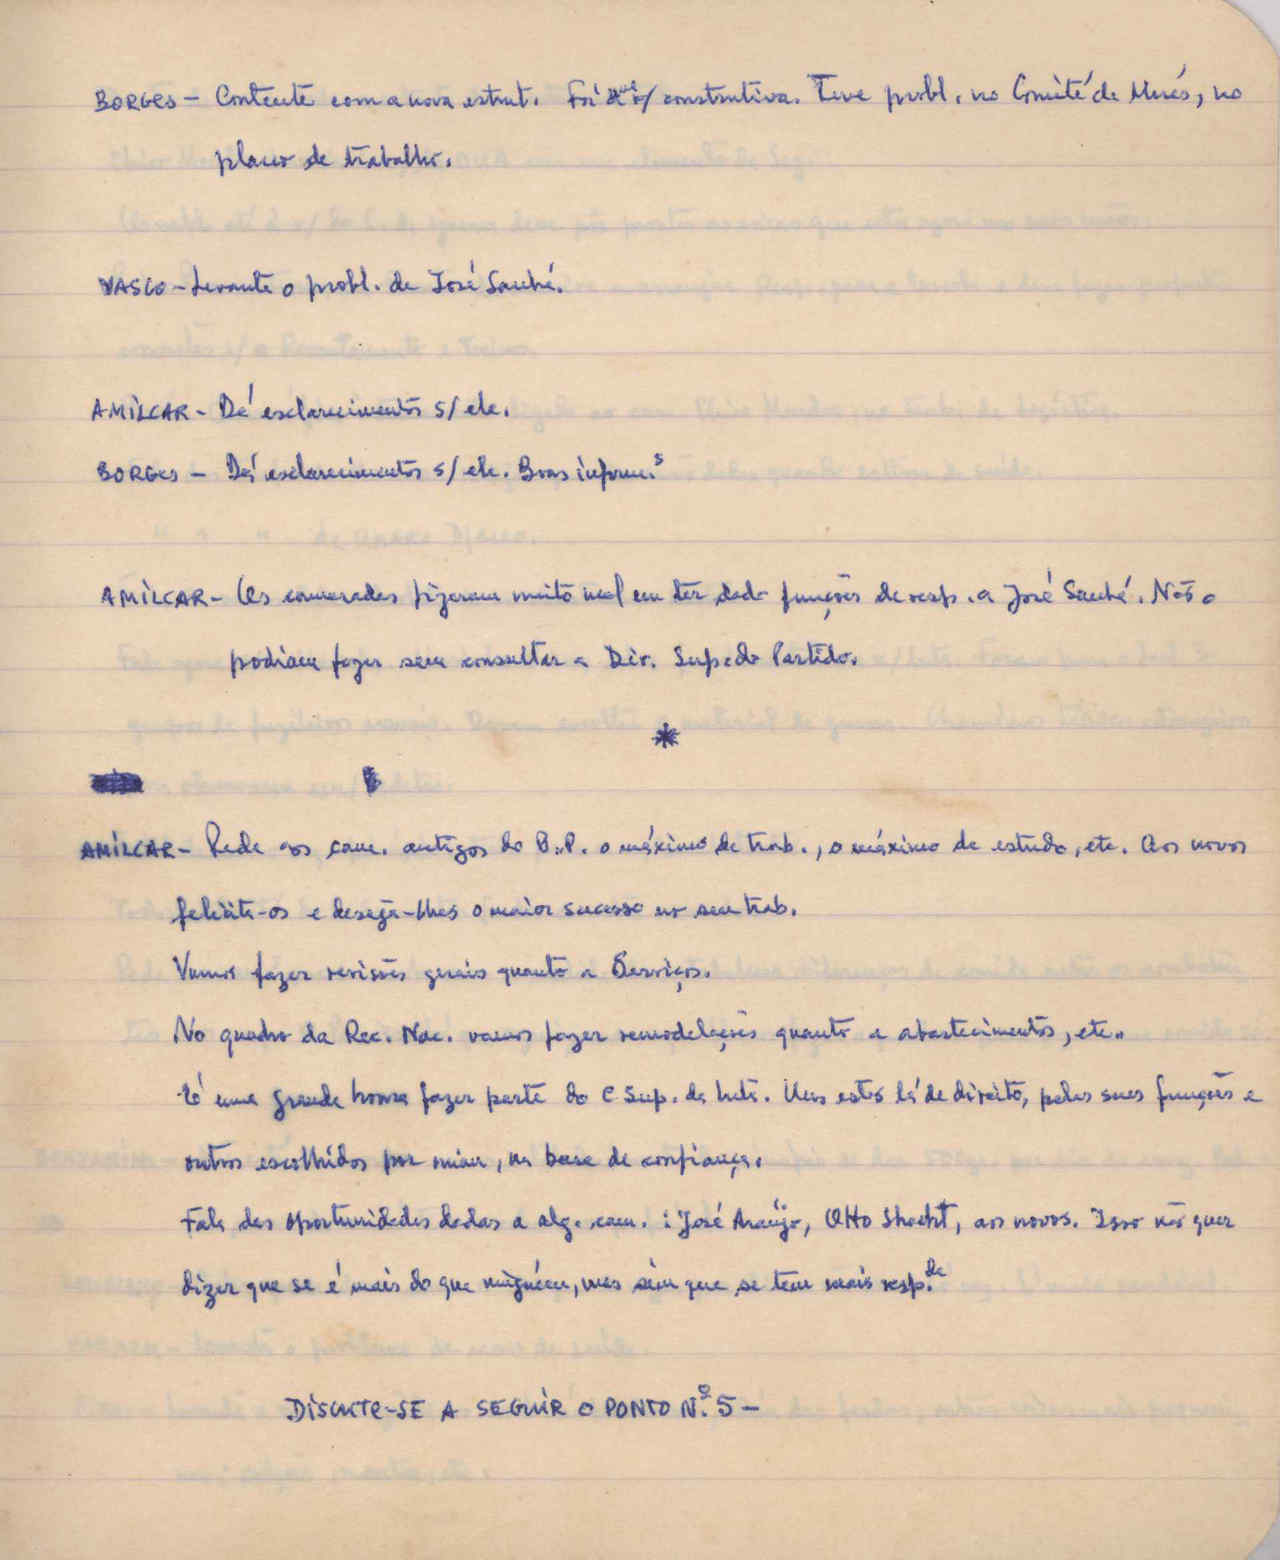 BORGES - Contente com a nova estrut. Foi construtiva. Teve probl. no Comité de Morés, no
plano de trabalho.
VASCO - Levanta o probl. de José Sanhá.
AMÍLCAR - Dá esclarecimentos s/ ele.
BORGES - Dá esclarecimentos s/ ele. Boas inform.s
AMÍLCAR - Os camaradas fizeram muito mal em ter dado funções de resp. a José Sanhá. Não o
podiam fazer sem consultar a Dir. Sup. do Partido.
*
AMÍLCAR - Pede aos cam. antigos do B.P. o máximo de trab., o máximo de estudo, etc. Aos novos
felicita-os e deseja-lhes o maior sucesso no seu trab.
Vamos fazer revisões gerais quanto a Serviços.
No quadro da Rec. Nac. vamos fazer remodelações quanto a abastecimentos, etc.
É uma grande honra fazer parte do C Sup. da Luta. Uns estão lá de direito, pelas suas funções e
outros escolhidos por mim, na base de confiança.
Fala das oportunidades dadas a alg. cam. : José Araújo, Otto Shacht, aos novos. Isso não quer
dizer que se é mais do que ninguém, mas sim que se tem mais resp.de
DISCUTE-SE A SEGUIR O PONTO N.º 5 -